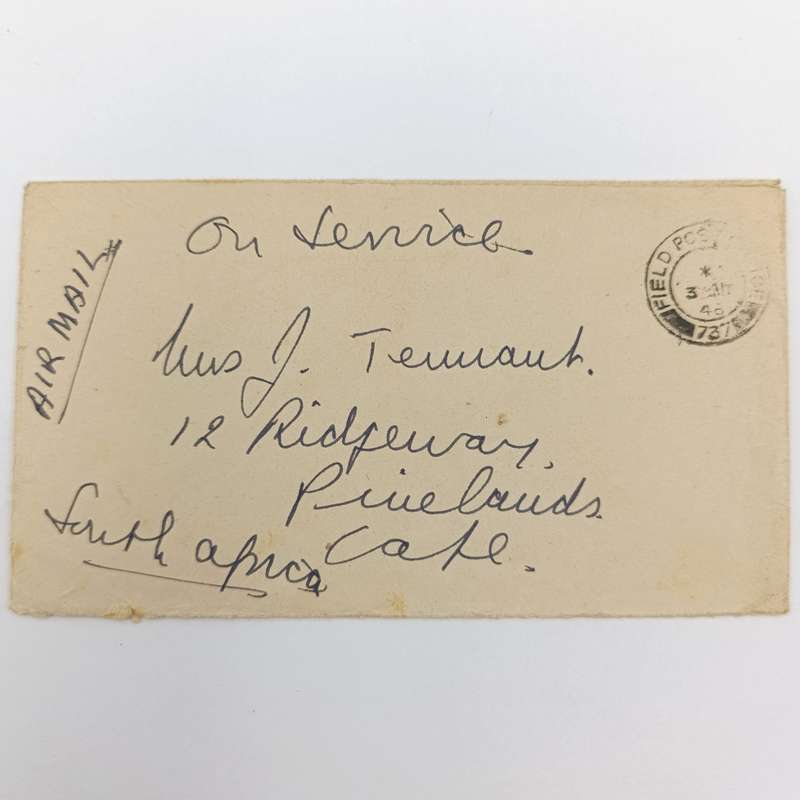 On Service
AIR MAIL
Mrs J. Tennant.
12 Ridgeway,
Pinelands
Cape.
South Africa
FIELD POST
*
3
46
737